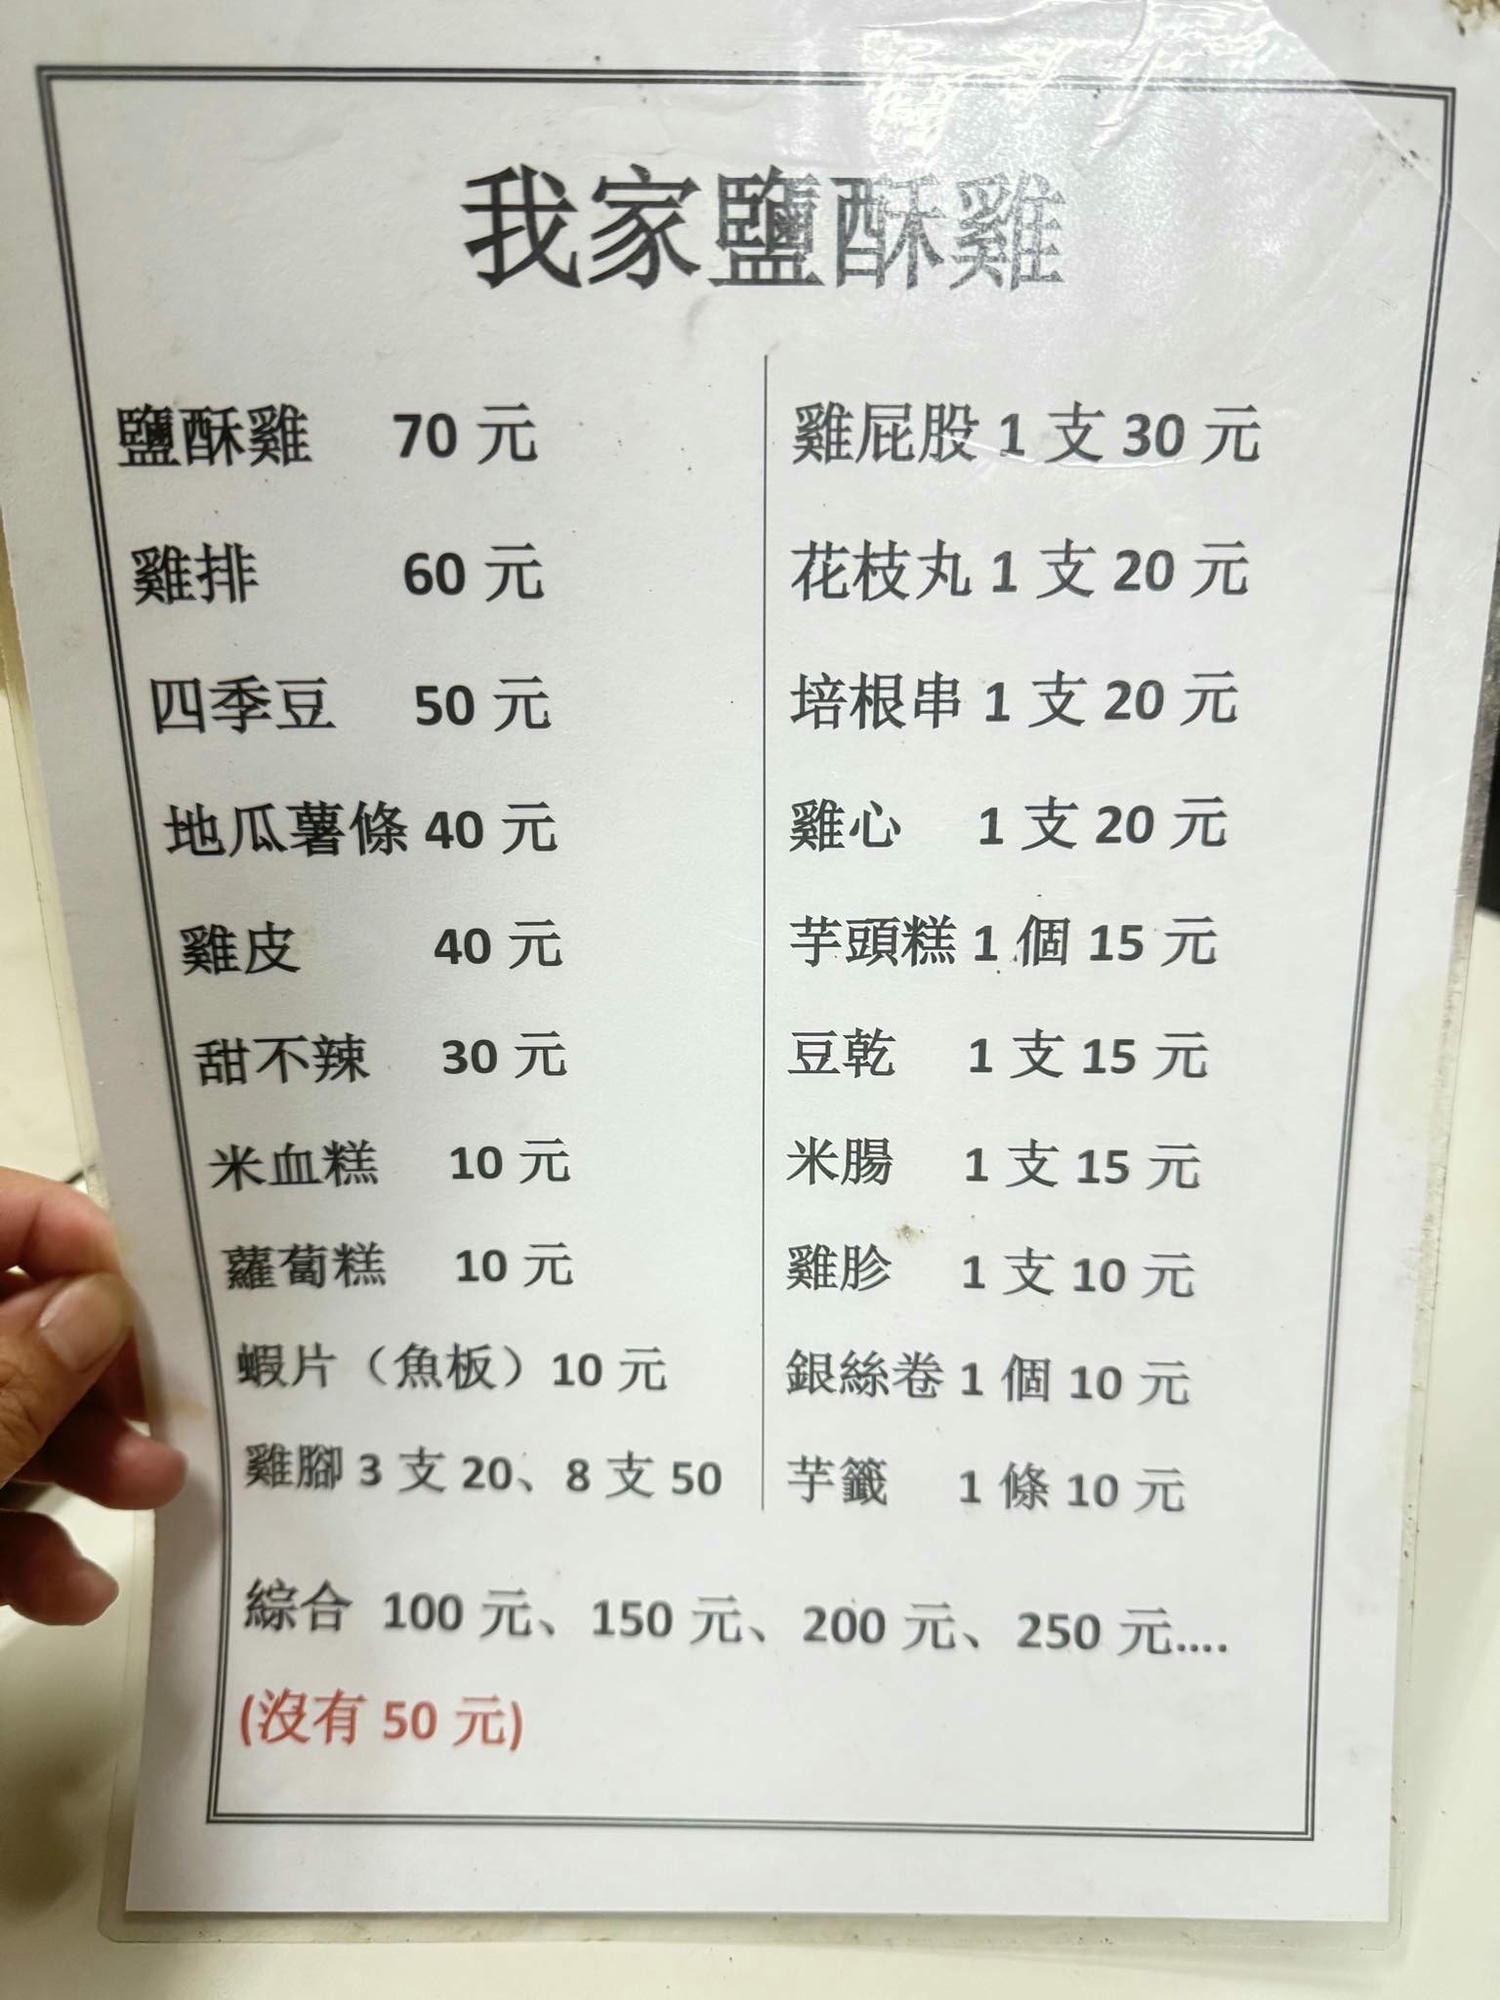 我家鹽酥雞
鹽酥雞 70 元
雞排 60 元
四季豆 50 元
地瓜薯條 40 元
雞皮 40 元
甜不辣 30 元
米血糕 10 元
蘿蔔糕 10 元
蝦片（魚板）10 元
雞腳 3 支 20、8 支 50
雞屁股 1 支 30 元
花枝丸 1 支 20 元
培根串 1 支 20 元
雞心 1 支 20 元
芋頭糕 1 個 15 元
豆乾 1 支 15 元
米腸 1 支 15 元
雞胗 1 支 10 元
銀絲卷 1 個 10 元
芋籤 1 條 10 元
綜合 100 元、150 元、200 元、250 元....
(沒有 50 元)